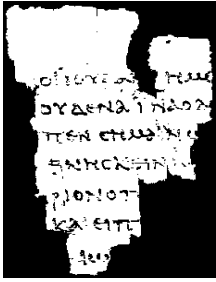 ΟΙΙΟΥΔΑ ΗΜΕ
ΟΥΔΕΝΑΙΝΑΟΛ
ΠΕΝϹΗΜΑΙΝΩ
ΘΝΗϹΚΕΙΝ
ΡΙΟΝΟΠ
ΚΑΙΕΙΠ